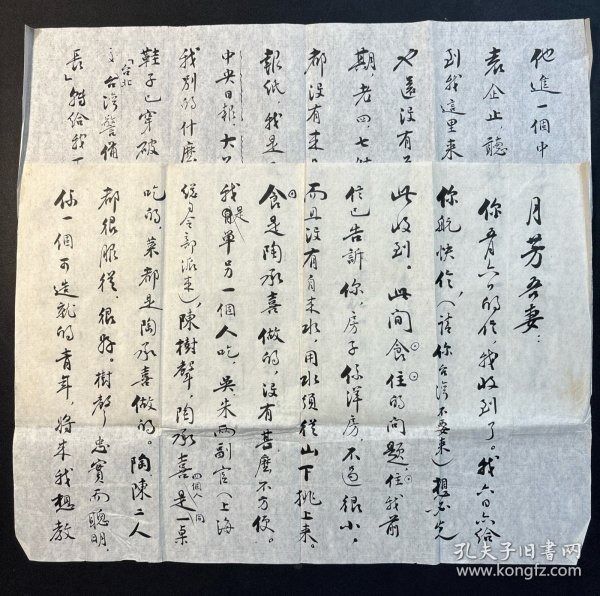 月芳吾妻：
你五月六日的信，我收到了。我六日六给
你航快信，（请你台湾不要来）想必先
此收到。此间食住的问题，住我前
信已告訴你，房子係洋房，不过很小，
而且没有自来水，用水须從山下挑上来。
食是陶承喜做的，没有甚麼不方便。
我是單另一個人吃，吳朱两副官（上海
派来），陳樹聲，陶承喜四個人同是一桌
吃的，菜都是陶承喜做的。陶陳二人
都很服從，很好。樹聲忠實而聰明，
係一個可造就的青年，将来我想教
他進一個中
袁企止聽
到我這里来
还没有
期，老四、七
都没有来。
報纸，我是
中央日報，大
我别的什麼
鞋子已穿破
「台北
台湾警備
長」轉给我
孔夫子旧书网
www.kongfz.com